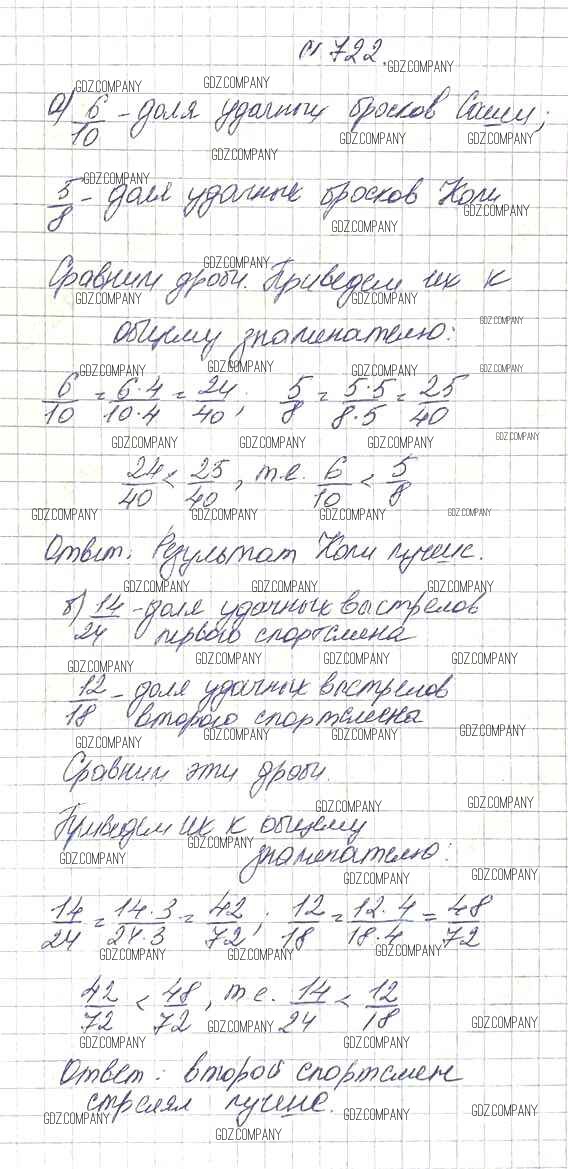 № 722.
а) 6/10 - доля удачных бросков Саши;
5/8 - доля удачных бросков Коли
Сравним дроби. Приведем их к
общему знаменателю:
6/10 = 6·4/10·4 = 24/40; 5/8 = 5·5/8·5 = 25/40
24/40 < 25/40, т.е. 6/10 < 5/8
Ответ: Результат Коли лучше.
б) 14/24 - доля удачных выстрелов
первого спортсмена
12/18 - доля удачных выстрелов
второго спортсмена
Сравним эти дроби.
Приведем их к общему
знаменателю:
14/24 = 14·3/24·3 = 42/72; 12/18 = 12·4/18·4 = 48/72
42/72 < 48/72, т.е. 14/24 < 12/18
Ответ: второй спортсмен
стрелял лучше.
GDZ.COMPANY